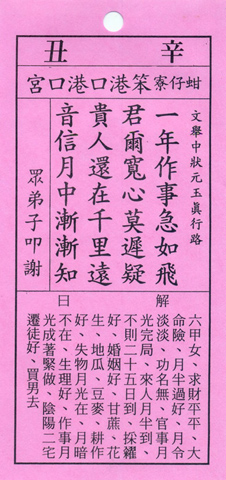 辛丑
蚶仔寮笨港口港口宮
文舉中狀元玉眞行路
一年作事急如飛
君爾寬心莫遲疑
貴人還在千里遠
音信月中漸漸知
眾弟子叩謝
解曰
六甲女、求財平平、大
命險、月半過好、月令
淡淡、功名無、官事月
光完局、來人月半到、
不則二十五日到、採糴
好、婚姻好、甘蔗、花
生、地瓜、豆麥、耕作
好、失物月光在、月暗
不在、生理好、作事月
光成著緊做、陰陽二宅
遷徒好、買男去